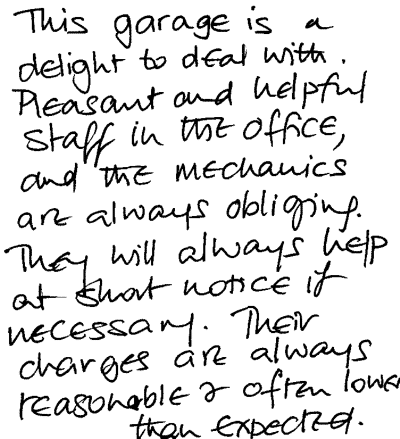 This garage is a
delight to deal with.
Pleasant and helpful
staff in the office,
and the mechanics
are always obliging.
They will always help
at short notice if
necessary. Their
charges are always
reasonable & often lower
than expected.